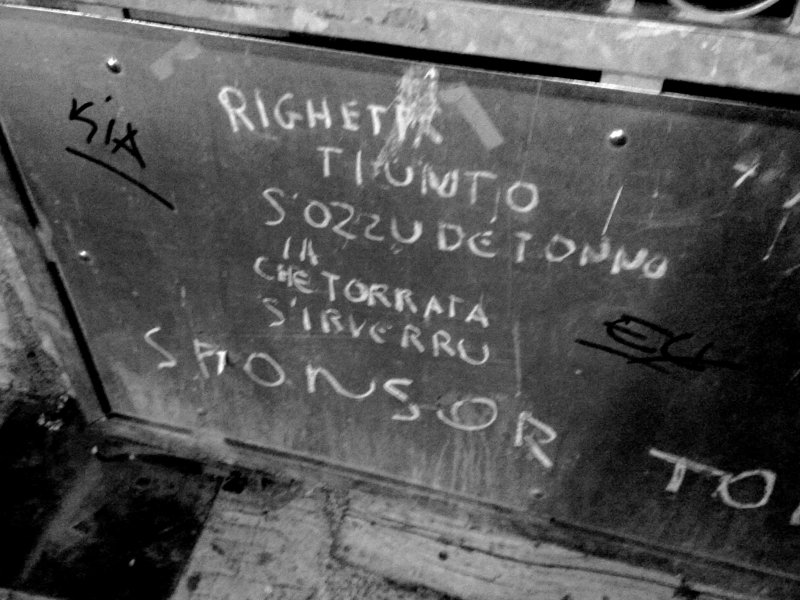 SIA
RIGHETTA
TIUNTO
S'OZZU DE TONNO
IA
CHE TORRATA
S'IRVERRU
SPONSOR
TO